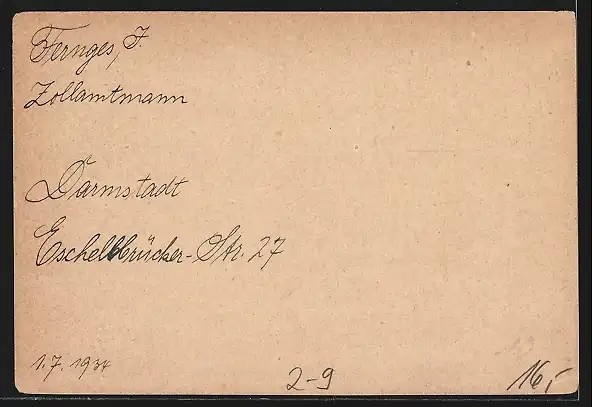 Fernges, J.
Zollamtmann
Darmstadt
Eschollbrücker-Str. 27
1.7.1934
2-9
16,-